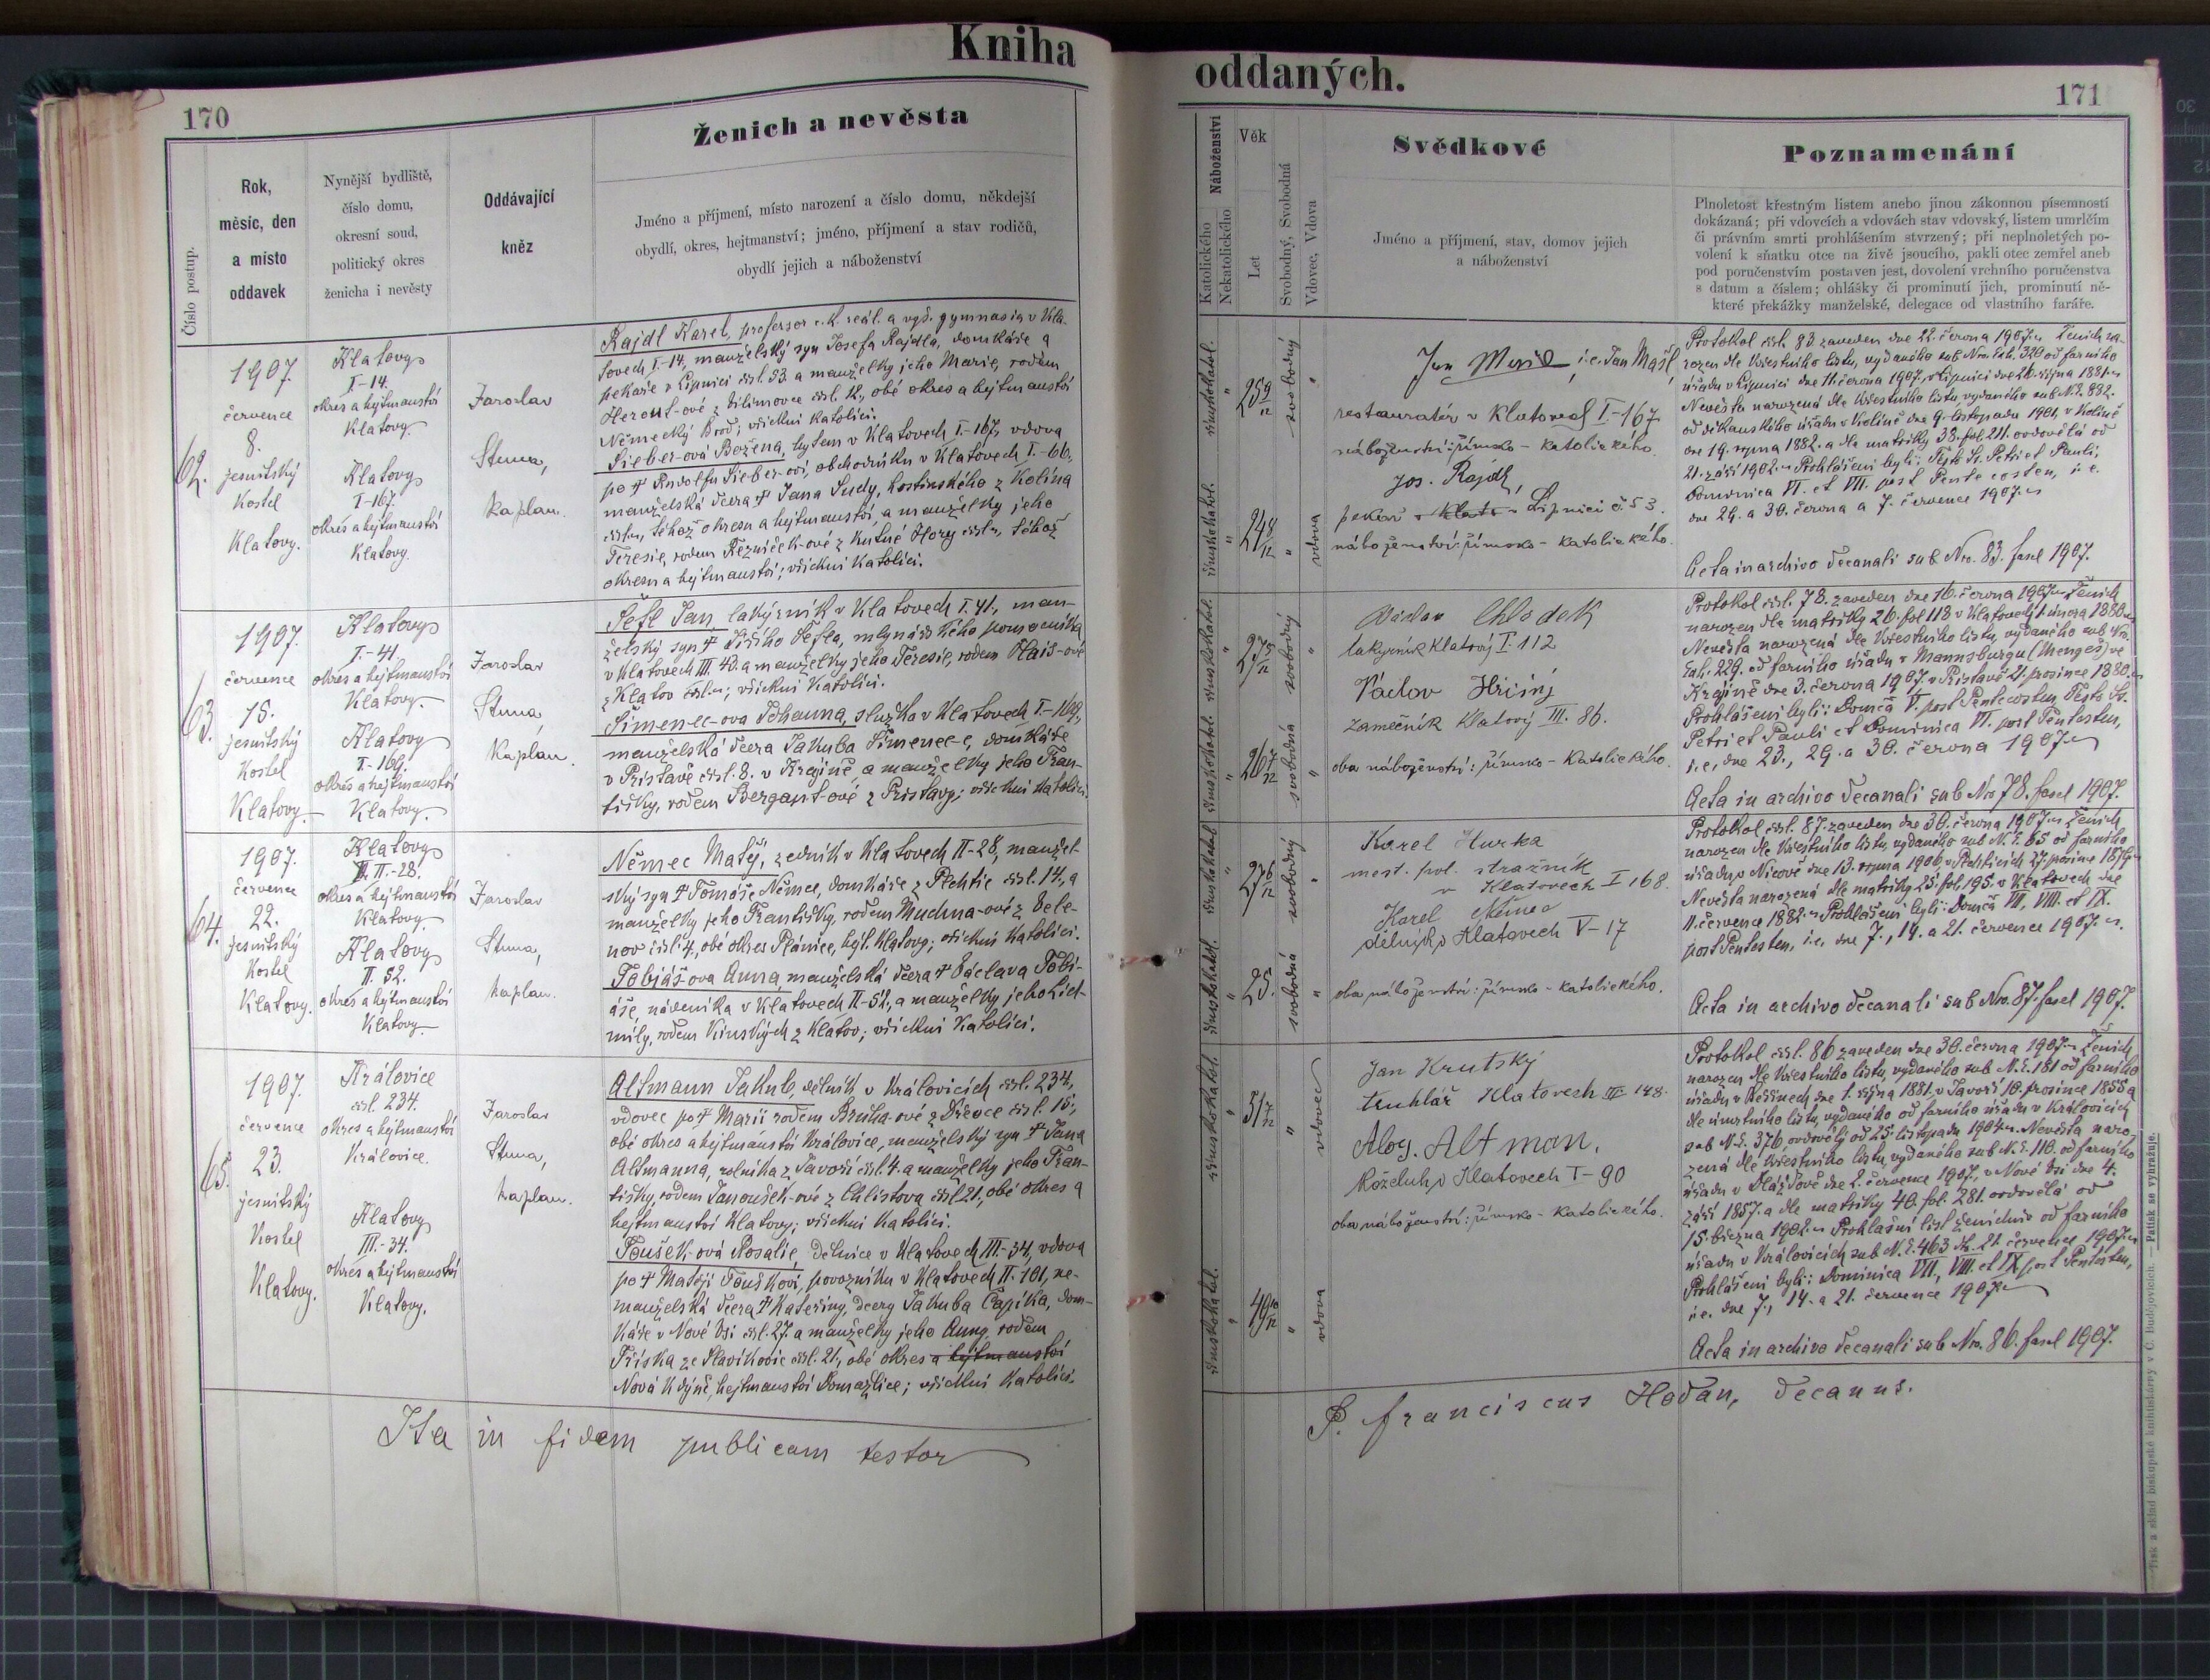 Kniha
170
Ženich a nevěsta
Číslo postup.
Rok,
měsíc, den
a místo
oddavek
Nynější bydliště,
číslo domu,
okresní soud,
politický okres
ženicha i nevěsty
Oddávající
kněz
Jméno a příjmení, místo narození a číslo domu, někdejší
obydlí, okres, hejtmanství; jméno, příjmení a stav rodičů,
obydlí jejich a náboženství
62.
1907.
července
8.
jesuitský
Kostel
Klatovy.
Klatovy
I-14.
okres a hejtmanství
Klatovy.
Klatovy
I-167.
okres a hejtmanství
Klatovy.
Jaroslav
Stuna,
kaplan.
Rajdl Karel, professor c.k. reál. a vyš. gymnasia v Kla-
tovech I-14, manželský syn Josefa Rajdla, domkáře a
pekaře v Lipnici čísl. 53. a manželky jeho Marie, rodem
Herout-ové z čísl. 12., obé okres a hejtmanství
Německý Brod; všichni katolíci.
Sieber-ová Božena, bytem v Klatovech I-167, vdova
po † Rudolfu Sieber-ovi, obchodníku v Klatovech I.-66,
manželská dcera † Jana Sudy, hostinského z Kolína
téhož okresu a hejtmanství, a manželky jeho
Teresie, rodem Řezníček-ové z Kutné Hory téhož
okresu a hejtmanství; všichni katolíci.
63.
1907.
července
15.
jesuitský
Kostel
Klatovy
Klatovy
I.-41
okres a hejtmanství
Klatovy.
Klatovy
I.-169.
okres a hejtmanství
Klatovy.
Jaroslav
Stuna
Kaplan.
Šefl Jan, lakýrník v Klatovech I. 41., man-
želský syn † Jiřího Šefla, mlynářského pomocníka
v Klatovech III. 40. a manželky jeho Teresie, rodem Hais-ové
z Klatov všichni katolíci.
Šimenec-ova Johanna, služka v Klatovech I-169.,
manželská dcera Jakuba Šimenec-e, domkáře
v Pristavě čísl. 8. v Krajině, a manželky jeho Fran-
tišky, rodem Bergant-ové z Pristavy; všichni katolíci.
64.
1907.
července
22.
jesuitský
Kostel
Klatovy.
Klatovy
II.-28.
okres a hejtmanství
Klatovy.
Klatovy
II. 52.
okres a hejtmanství
Klatovy
Jaroslav
Stuna,
kaplan.
Němec Matěj, zedník v Klatovech II-28, manžel-
ský syn † Tomáše Němce, domkáře z Plchtic čísl. 14., a
manželky jeho Františky, rodem Muchna-ové z
čísl. 4, obé okres Plánice, hejt. Klatovy; všichni katolíci.
Tobiáš-ova Anna, manželská dcera † Václava Tobi-
áše, nádeníka v Klatovech II-52, a manželky jeho Lid-
mily, rodem Kinských z Klatov; všichni katolíci.
65.
1907.
července
23.
jesuitský
Kostel
Klatovy.
Královice
čísl. 234.
okres a hejtmanství
Královice.
Klatovy
III.-34.
okres a hejtmanství
Klatovy.
Jaroslav
Stuna,
kaplan.
Altmann Jakub, dělník v Královicích čísl. 234,
vdovec po † Marii rodem z Dřevce čísl. 15;
obé okres a hejtmanství Královice, manželský syn † Jana
Altmanna, rolníka z Javoří čísl. 4. a manželky jeho Fran-
tišky, rodem Janoušek-ové z Chlistova čísl. 21, obé okres a
hejtmanství Klatovy; všichni katolíci.
Toušek-ová Rosalie, dělnice v Klatovech III-34, vdova
po † Matěji Touškovi, povozníku v Klatovech II. 101, ne-
manželská dcera † Kateřiny, dcery Jakuba Čapíka, dom-
káře v Nové Vsi čísl. 27. a manželky jeho Anny rodem
Tříska ze Slavíkovic čísl. 21., obé okres a hejtmanství
Nová Kdýně, hejtmanství Domažlice; všichni katolíci.
Ita in fidem publicam testor
oddaných.
171
Náboženství
Katolického
Nekatolického
Věk
Let
Svobodný, Svobodná
Vdovec, Vdova
Svědkové
Jméno a příjmení, stav, domov jejich
a náboženství
Poznamenání
Plnoletost křestným listem anebo jinou zákonnou písemností
dokázaná; při vdovcích a vdovách stav vdovský, listem umrlčím
či právním smrti prohlášením stvrzený; při neplnoletých po-
volení k sňatku otce na živě jsoucího, pakli otec zemřel aneb
pod poručenstvím postaven jest, dovolení vrchního poručenstva
s datum a číslem; ohlášky či prominutí jich, prominutí ně-
které překážky manželské, delegace od vlastního faráře.
římskokatol.
25 9/12
svobodný
římskokatol.
24 8/12
vdova
i.e. Jan Mašl,
restauratér v Klatovech I-167
náboženství: římsko-katolického.
Jos. Rajdl,
pekař v Klato v Lipnici č. 53.
náboženství: římsko-katolického.
Protokol čísl. 83 zaveden dne 22. června 1907. Ženich na-
rozen dle křestního listu, vydaného sub Nro. Exh. 320 od farního
úřadu v Lipnici dne 11. června 1907. v Lipnici dne 26. října 1881.
Nevěsta narozená dle křestního listu, vydaného sub N.E. 882.
od děkanského úřadu v Kolíně dne 9. listopadu 1901, v Kolíně
dne 19. srpna 1882. a dle matriky 38. fol. 211. ovdovělá od
21. září 1902. Prohlášeni byli: Festo Ss. Petri et Pauli,
Dominica VI. et VII. post Pentecosten, i.e.
dne 29. a 30. června a 7. července 1907.
Acta in archivo decanali sub Nro. 83. fasc. 1907.
římskokatol.
27 5/12
svobodný
římskokatol.
26 7/12
svobodná
Václav Chlodek
lakyrník Klatový I. 112
Václav Hřičiný
zámečník Klatový III. 86.
oba náboženství: římsko-katolického.
Protokol čísl. 78. zaveden dne 16. června 1907. Ženich
narozen dle matriky 26. fol. 118 v Klatovech 1. února 1880.
Nevěsta narozená dle křestního listu, vydaného sub Nro.
Exh. 229. od farního úřadu v Mannsburgu (Mengeš) ve
Krajině dne 3. června 1907. v Pristavě 21. prosince 1880.
Prohlášeni byli: Domca V. post Pentecosten, Festo Ss.
Petri et Pauli et Dominica VI. post Pentcosten,
i.e. dne 23., 29. a 30. června 1907.
Acta in archivo decanali sub Nro 78. fasc. 1907.
římskokatol.
27 6/12
svobodný
římskokatol.
25.
svobodná
Karel Hurka
mest. pol. stražník
v Klatovech I 168.
Karel Němec
dělník v Klatovech V-17
oba náboženství: římsko-katolického.
Protokol čísl. 87. zaveden dne 30. června 1907. Ženich
narozen dle křestního listu, vydaného sub N.E. 65 od farního
úřadu v Nicově dne 13. srpna 1906 v Plchticích 27. prosince 1879.
Nevěsta narozená dle matriky 25. fol. 195. v Klatovech dne
11. července 1882. Prohlášeni byli: Domca VII, VIII. et IX.
post Pentcosten, i.e. dne 7., 14. a 21. července 1907.
Acta in archivo decanali sub Nro. 87. fasc. 1907.
římskokatol.
51 7/12
vdovec
římskokatol.
49 10/12
vdova
Jan Krutský
truhlář Klatovech III 148.
Aloy. Altman,
koželuh v Klatovech I-90
oba náboženství: římsko-katolického.
Protokol čísl. 86 zaveden dne 30. června 1907. Ženich
narozen dle křestního listu, vydaného sub N.E. 181 od farního
úřadu v Běšinech dne 1. října 1881. v Javoří 10. prosince 1855 a
dle úmrtního listu, vydaného od farního úřadu v Královicích
sub N.E. 376 ovdovělý od 25. listopadu 1904. Nevěsta naro-
zená dle křestního listu, vydaného sub N.E. 110. od farního
úřadu v dne 2. července 1907., v Nové Vsi dne 4.
září 1857. a dle matriky 40. fol. 281. ovdovělá od
15. března 1902. Prohlašní list ženichův od farního
úřadu v Královicích sub N.E. 463 dto. 21. července 1907.
Prohlášeni byli: Dominica VII., VIII. et IX. post Pentcosten,
i.e. dne 7., 14. a 21. července 1907.
Acta in archivo decanali sub Nro. 86. fasc. 1907.
P. Franciscus Hodan, decanus.
Tisk a sklad biskupské knihtiskárny v Č. Budějovicích. — Patisk se vyhražuje.